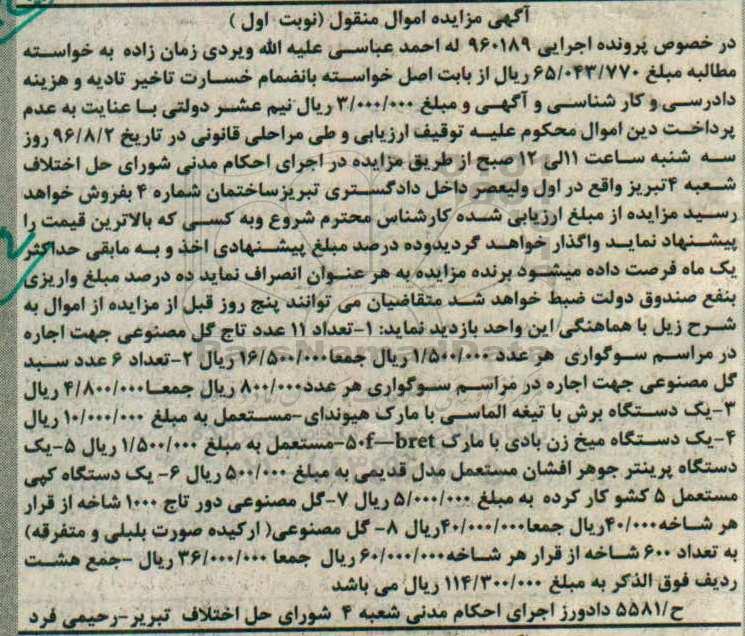 آگهی مزایده اموال منقول (نوبت اول )
در خصوص پرونده اجرایی ۹۶۰۱۸۹ له احمد عباسی علیه الله ویردی زمان زاده به خواسته
مطالبه مبلغ ۶۵/۰۴۳/۷۷۰ ریال از بابت اصل خواسته بانضمام خسارت تاخیر تادیه و هزینه
دادرسی و کار شناسی و آگهی و مبلغ ۳/۰۰۰/۰۰۰ ریال نیم عشر دولتی با عنایت به عدم
پرداخت دین اموال محکوم علیه توقیف ارزیابی و طی مراحلی قانونی در تاریخ ۹۶/۸/۲ روز
سه شنبه ساعت ۱۱الی ۱۲ صبح از طریق مزایده در اجرای احکام مدنی شورای حل اختلاف
شعبه ۴تبریز واقع در اول ولیعصر داخل دادگستری تبریزساختمان شماره ۴ بفروش خواهد
رسید مزایده از مبلغ ارزیابی شده کارشناس محترم شروع وبه کسی که بالاترین قیمت را
پیشنهاد نماید واگذار خواهد گردیدوده درصد مبلغ پیشنهادی اخذ و به مابقی حداکثر
یک ماه فرصت داده میشود برنده مزایده به هر عنوان انصراف نماید ده درصد مبلغ واریزی
بنفع صندوق دولت ضبط خواهد شد متقاضیان می توانند پنج روز قبل از مزایده از اموال به
شرح زیل با هماهنگی این واحد بازدید نماید: ۱-تعداد ۱۱ عدد تاج گل مصنوعی جهت اجاره
در مراسم سوگواری هر عدد ۱/۵۰۰/۰۰۰ ریال جمعا۱۶/۵۰۰/۰۰۰ ریال ۲-تعداد ۶ عدد سبد
گل مصنوعی جهت اجاره در مراسم سوگواری هر عدد۸۰۰/۰۰۰ ریال جمعا۴/۸۰۰/۰۰۰ ریال
۳-یک دستگاه برش با تیغه الماسی با مارک هیوندای-مستعمل به مبلغ ۱۰/۰۰۰/۰۰۰ ریال
۴-یک دستگاه میخ زن بادی با مارک ۵۰f—bret-مستعمل به مبلغ ۱/۵۰۰/۰۰۰ ریال ۵-یک
دستگاه پرینتر جوهر افشان مستعمل مدل قدیمی به مبلغ ۵۰۰/۰۰۰ ریال ۶- یک دستگاه کپی
مستعمل ۵ کشو کار کرده به مبلغ ۵/۰۰۰/۰۰۰ ریال ۷-گل مصنوعی دور تاج ۱۰۰۰ شاخه از قرار
هر شاخه۴۰/۰۰۰ریال جمعا۴۰/۰۰۰/۰۰۰ریال ۸- گل مصنوعی( ارکیده صورت بلبلی و متفرقه)
به تعداد ۶۰۰ شاخه از قرار هر شاخه۶۰/۰۰۰/۰۰۰ ریال جمعا ۳۶/۰۰۰/۰۰۰ ریال -جمع هشت
ردیف فوق الذکر به مبلغ ۱۱۴/۳۰۰/۰۰۰ ریال می باشد
ح/۵۵۸۱ دادورز اجرای احکام مدنی شعبه ۴ شورای حل اختلاف تبریز-رحیمی فرد